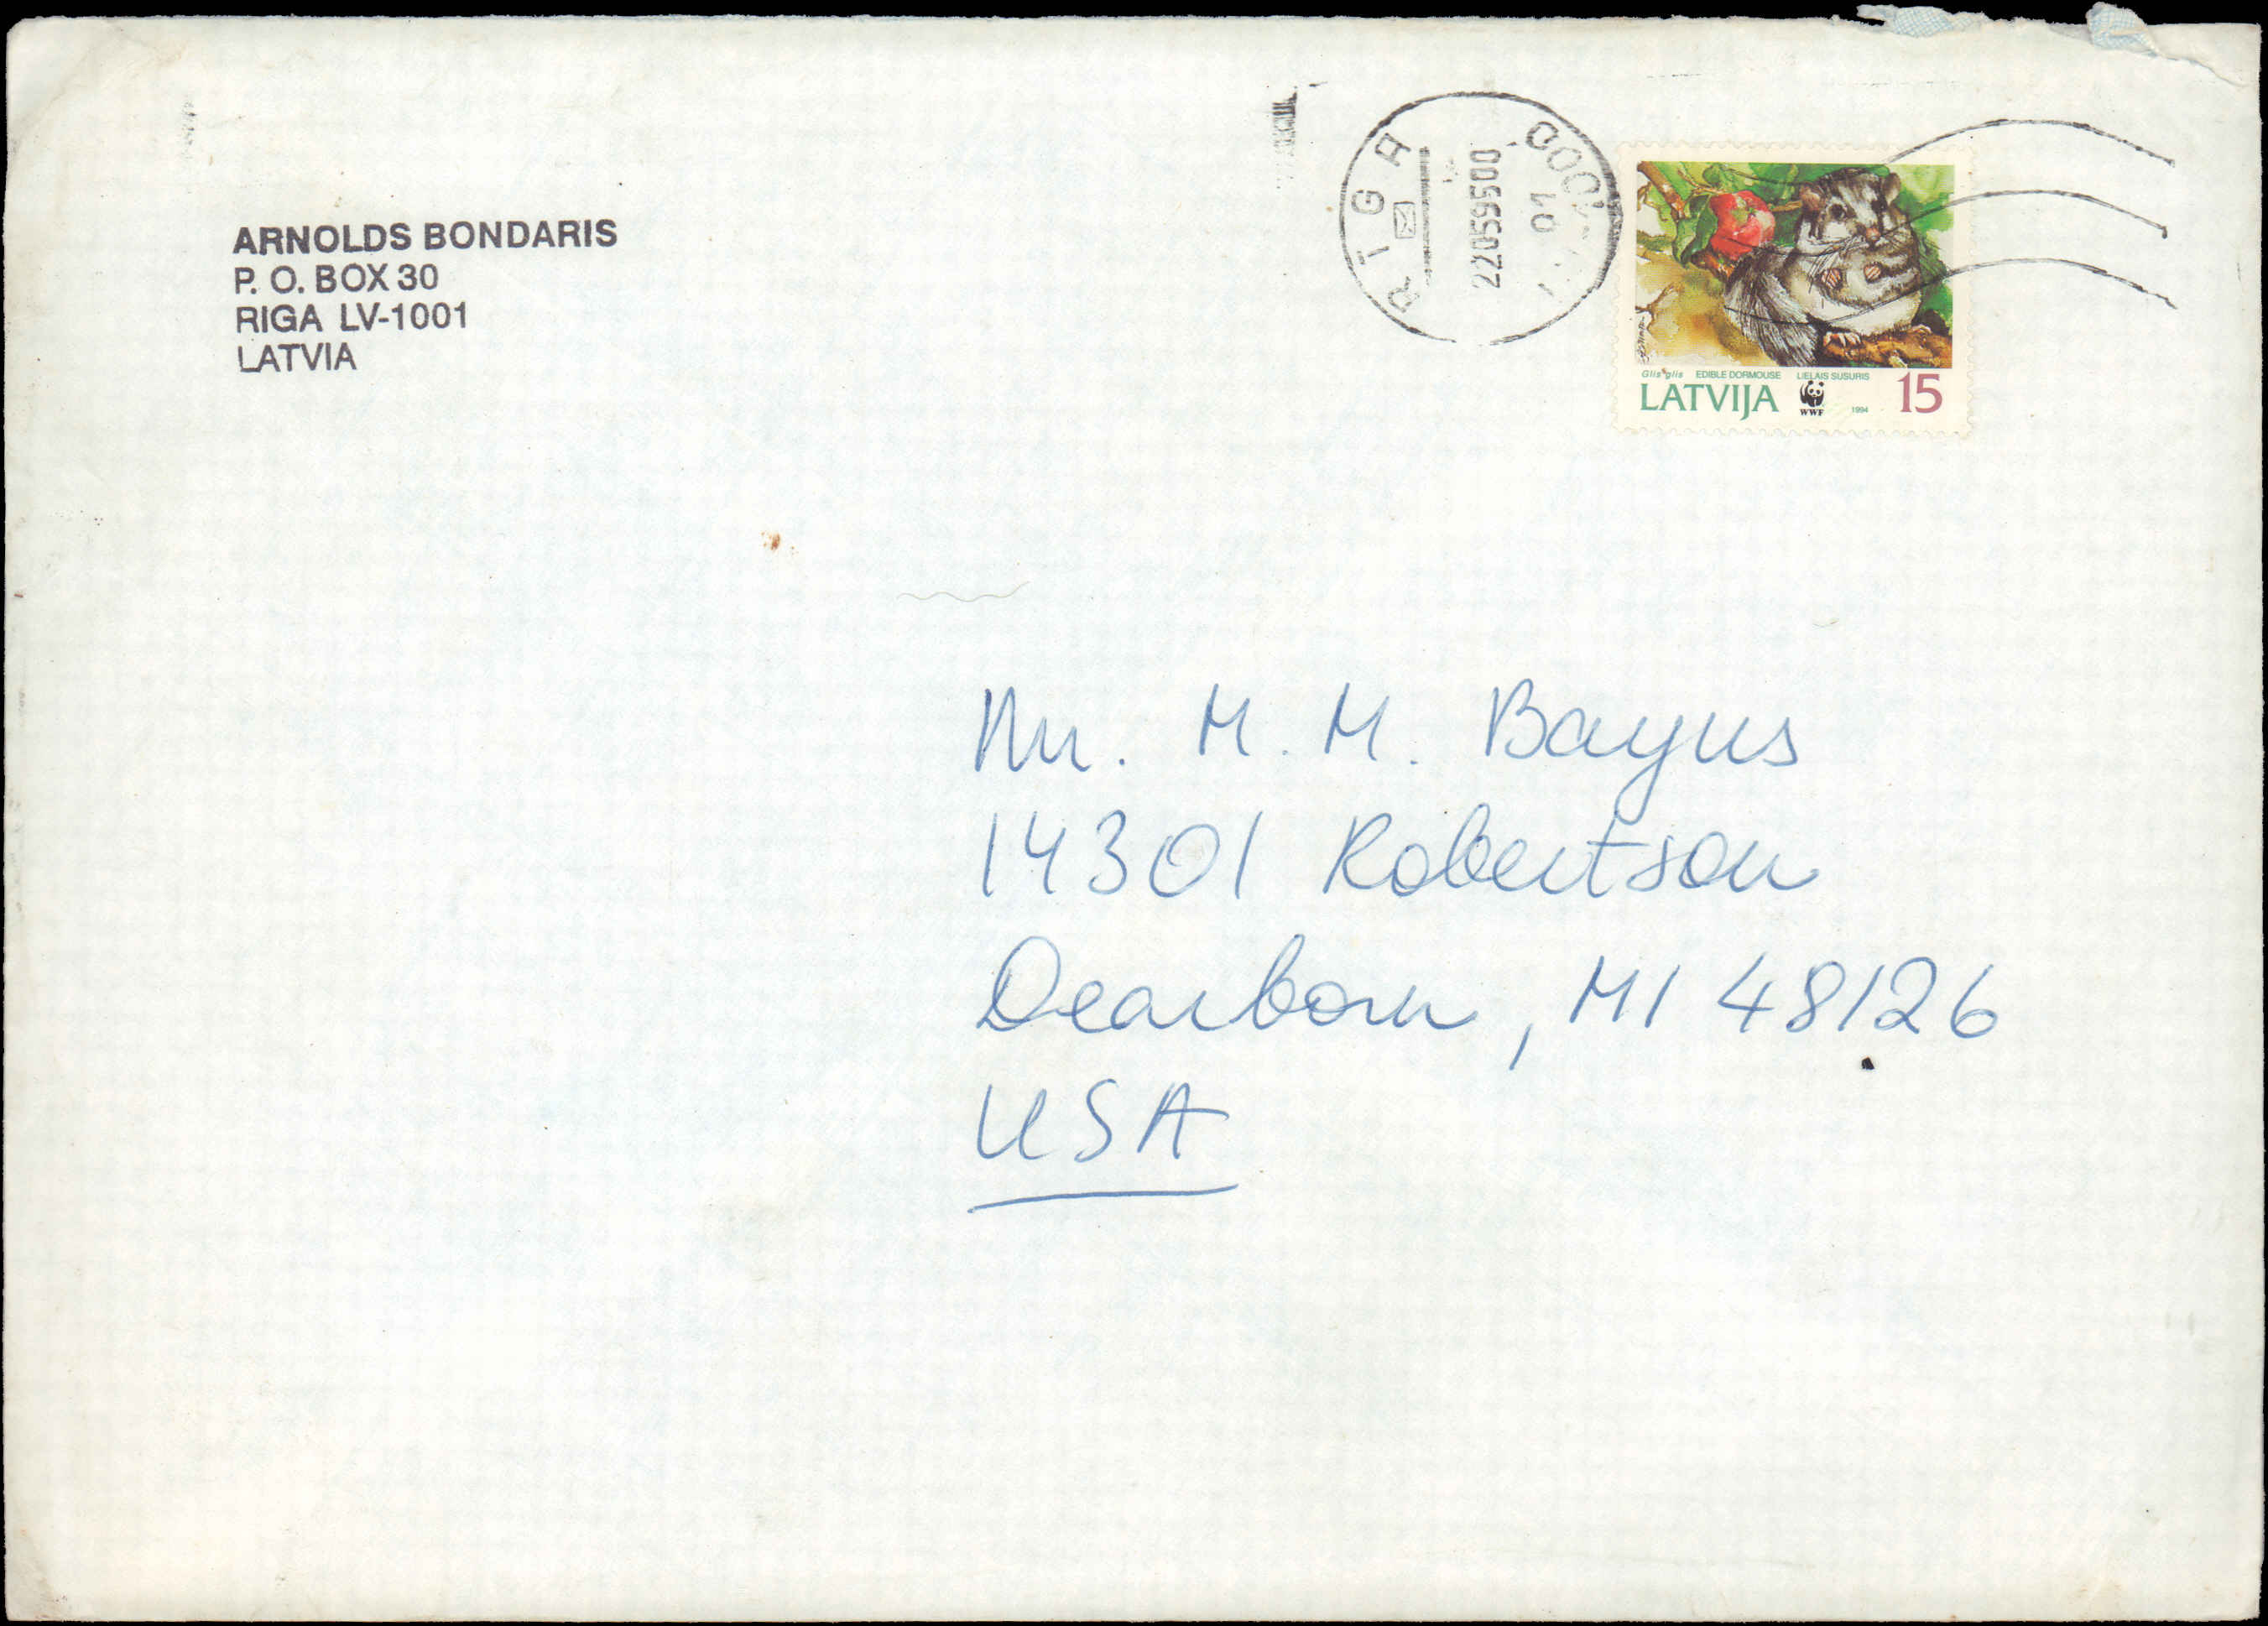 ARNOLDS BONDARIS
P. O. BOX 30
RIGA LV-1001
LATVIA
RIGA
2205959500
01
Glis glis EDIBLE DORMOUSE LIELAIS SUSURIS
LATVIJA WWF 1994 15
Mr. M. M. Bayus
14301 Robertson
Dearborn, MI 48126
USA